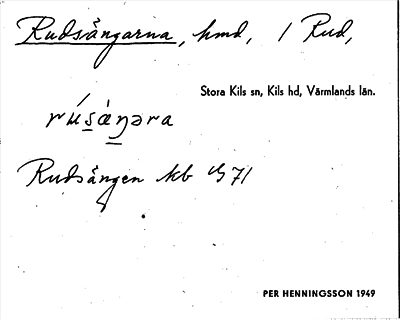 Rudsängarna, hmd, / Rud,
Stora Kils sn, Kils hd, Värmlands län.
rúsàŋəra
Rudsängen kb 71
PER HENNINGSSON 1949